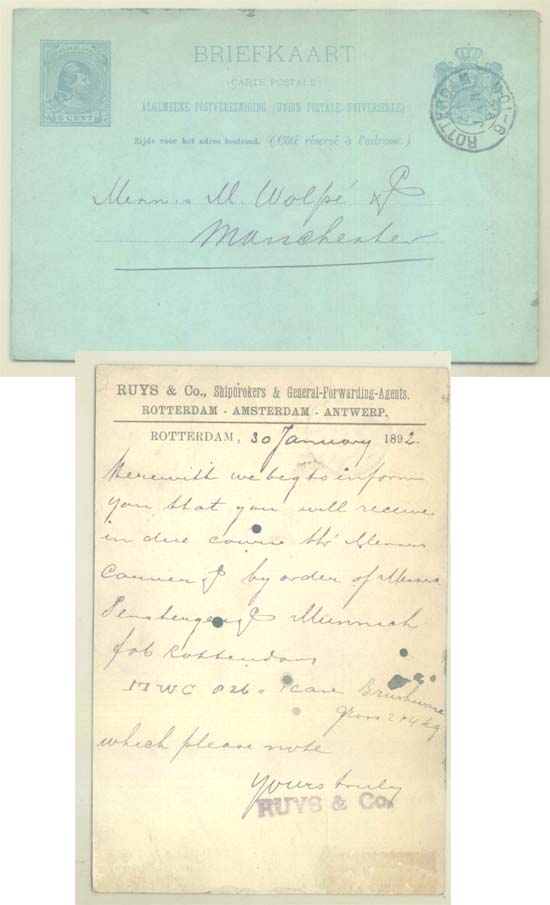 NEDERLAND
5 CENT
BRIEFKAART
(CARTE POSTALE)
ALGEMEENE POSTVEREENIGING (UNION POSTALE UNIVERSELLE)
Zijde voor het adres bestemd. (Côté réservé à l'adresse.)
ROTTERDAM
Messrs M. Wolpé & Co
Manchester
RUYS & Co., Shipbrokers & General-Forwarding-Agents.
ROTTERDAM - AMSTERDAM - ANTWERP.
ROTTERDAM, 30 January 1892.
Herewith we beg to inform
you that you will receive
in due course thr Messrs
& Co by order of Messrs
& Co Munnich
fob Rotterdam
MWC 826 = 1 case Brushware
gross 204 kg
which please note
Yours truly
RUYS & Co.